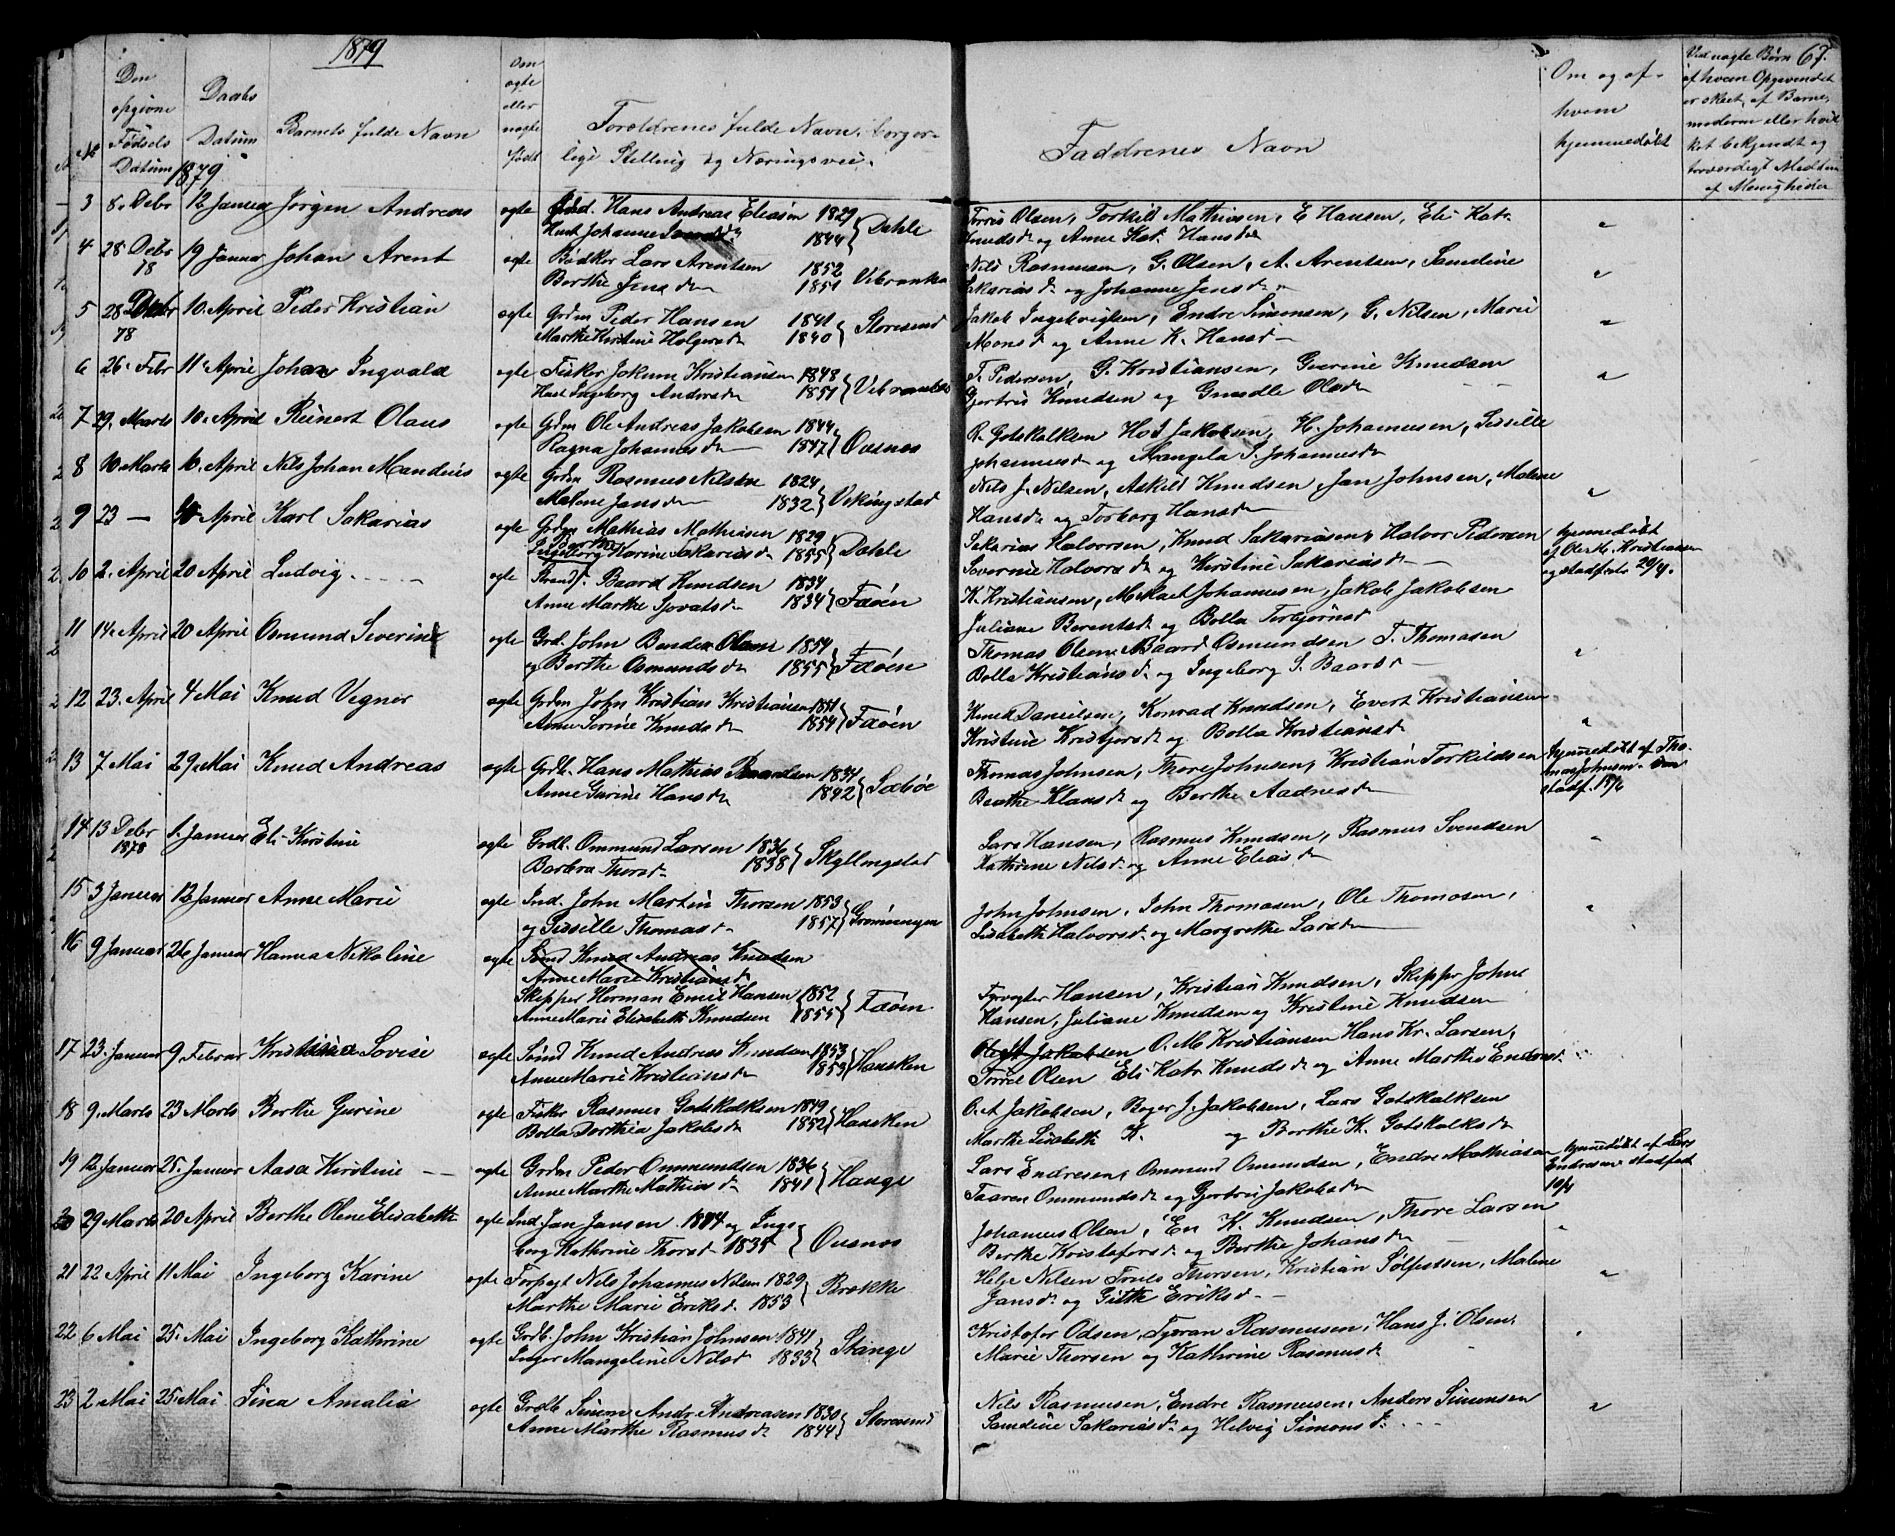 1879
67.
No
Den opgivne Fødsels Datum
Daabs Datum
1879
Barnets fulde Navn
Om ægte eller uægte født
Forældrenes fulde Navn, borger-
lige Stilling og Næringsvei.
Faddrenes Navn
Om og af hvem hjemmedøbt
Ved uægte Børn
af hvem Opgivendet
er skeet, af Barne-
moderen eller hvil
ket bekjendt og
troværdigt Medlem
af Menigheden
3 8. Debr 12 Januar Jørgen Andreas ægte Grdb. Hans Andreas Eliasen 1829
Hust Johanne 1844 } Dahle
Torris Olsen, Torkild Mathiesen, E Hansen, Eli Katr
Knudsd og Anne Kat. Hansd
4 28 Debr 78 19 Januar Johan Arent ægte Bødker Lars Arentsen 1852
Berthe Jensd 1851 } Vibranke
Nils Rasmussen, G. Olsen, A. Arentsen, Samdine
Sakariasd og Johanne Jensd
5 28 Debr 78 10 April Peder Kristian ægte Grdm Peder Hansen 1841
Marthe Kirstine Holgersd 1840 } Storesund
Jakob Ingebrigtsen, Endre Simonsen, G. Nilsen, Marie
Monsd og Anne K. Hansd
6 26. Febr 11. April Johan Ingvald ægte Fisker Jokum Kristiansen 1848
Hust Ingeborg Andersd 1851 }
T. Pedersen, G. Kristiansen, Knudsen
Gjertrui Knudsen og Olsd
7 29. Marts 10. April Reinert Olaus ægte Grdm Ole Andreas Jakobsen 1844
Ragna Johannesd 1847 } Ousnes
R. Gotskalksen H. Johannesen, Sissille
Johannesd og Mangela S. Johannesd
8 10 Marts 10. April Nils Johan Mandius ægte Grdm Rasmus Nilsen 1824
Malene Jansd 1832 } Vikingstad
Nils J. Nilsen, Askild Knudsen, Jan Johnsen, Malene
Hansd og Torborg Hansd
9 23 — April Karl Sakarias ægte Grdm Mathias Mathiesen 1829
Ingeborg Karine Sakariasd 1855 } Dahle
Sakarias Halvorsen, Knud Sakariasen, Halvor Pedersen
Severine Halvorsd og Kirstine Sakariasd
hjemmedøbt
af Ole M. Kristiansen
og stadfestet 20/4.
10 2. April 20 April Ludvig ægte Strands. Baard Knudsen 1834
Anne Marthe Sjovatsd 1834 } Fæøen
K. Kristiansen, Mikael Johannesen, Jakob Jakobsen
Juliane Berentsd og Bolla Torbjørnsd
11 14. April 20 April Osmund Severin ægte Grd. John Bendix Olsen 1851
og Berthe Osmundsd 1855 } Fæøen
Thomas Olsen, Baard Osmundsen T. Thomasen
Bolla Kristiansd og Ingeborg S. Baardsd
12 23. April 4 Mai Knud Vegner ægte Grdm John Kristian Kristiansen 1851
Anne Serine Knudsd 1854 } Fæøen
Knud Danielsen, Konrad Knudsen, Evert Kristiansen
Kristine Kristjersd og Bolla Kristiansd
13 7 Mai 29. Mai Knud Andreas ægte Grdb. Hans Mathias 1831
Anne Gurine Hansd 1842 } Sæbøe
Thomas Johnsen, Thore Johnsen, Kristian Torkildsen
Berthe Klausd og Berthe Aadnesd
hjemmedøbt af Tho-
mas Johnsen
stadf. 15/6
14 13 Debr 1878 1. Januar Eli Kirstine ægte Grdb. Ommund Larsen 1836
Barbra Thorsd 1838 } Skyllingstad
Lars Hansen, Rasmus Knudsen, Rasmus Svendsen
Kathrine Nilsd og Anne Eliasd
15 3 Januar 12 Januar Anne Marie ægte Ind. John Martin Thorsen 1853
og Sissille Thomasd 1857 } Grønningen
John Johnsen, John Thomasen, Ole Thomasen,
Lisabeth Halvorsd og Margrethe Larsd
16 9 Januar 26 Januar Hanna Nikoline ægte Sømd Knud Andreas Knudsen
Anne Marie Kristiansd
Skipper Herman Emil Hansen 1852
Anne Marie Elisabeth Knudsen 1855 } Fæøen
Fyrvogter Hansen, Kristian Knudsen, Skipper John
Hansen, Juliane Knudsen og Kristine Knudsen
17 23. Januar 9. Februar Kristina Lovise ægte Sømd Knud Andreas Knudsen 1853
Anne Marie Kristiansd 1853 } Hansken
Ole A Jakobsen O. M Kristiansen Hans Kr. Larsen,
Torris Olsen Eli Katr Knudsd og Anne Marthe Endresd
18 9. Marts 23 Marts Berthe Gurine ægte Fisker Rasmus Godskalksen 1849
Bolla Dorthea Jakobsd 1852 } Hansken
O. A Jakobsen, Roger J. Jakobsen, Lars Gotskalksen
Marthe Lisabeth K. og Berthe K. Gotskalksd
19 12 Januar 25. Januar Aasa Kirstine ægte Grdm Peder Ommundsen 1836
Anne Marthe Mathiasd 1841 } Hauge
Lars Endresen, Ommund Omundsen, Endre Mathiasen
Taaren Ommundsd og Gjertrui Jakobsd
hjemmedøbt af Lars
Endresen stadfæst
10/4
20 29 Marts 20 April Berthe Oline Elisabeth ægte Ind Jan Jansen 1844 og Inge
borg Kathrine Thorsd 1835 } Ousnes
Johannes Olsen, En K. Knudsen, Thore Larsen
Berthe Kristofersd og Berthe Johansd
21 22 April 11 Mai Ingeborg Karine ægte Forpagt Nils Johannes Nilsen 1829
Marthe Marie Eriksd 1853 } Brekke
Helje Nilsen Truls Thorsen, Kristian Solfestsen, Malene
Jansd og Gitle Eriksd
22 6 Mai 25. Mai Ingeborg Kathrine ægte Grdb. John Kristian Johnsen 1841
Inger Mangeline Nilsd 1833 } Stange
Kristofer Odsen, Tjeran Rasmussen, Hans J. Olsen,
Marie Thorsen og Kathrine Rasmusd
23 2 Mai 25. Mai Sina Amalia ægte Grdb Simon Andr Andreasen 1830
Anne Marthe Rasmusd 1844 } Storesund
Nils Rasmussen, Endre Rasmussen, Anders Simonsen
Samdine Sakariasd og Helvig Simonsd